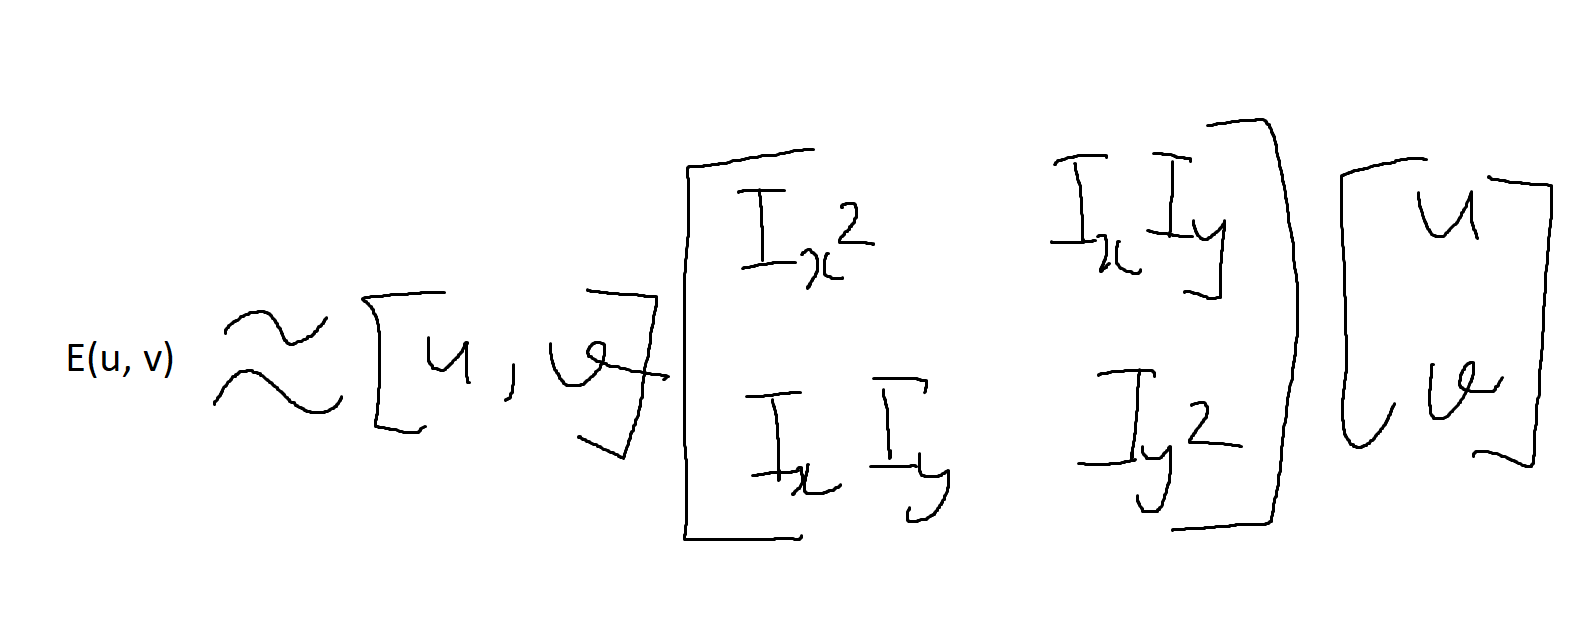 E(u, v) ≈ [u, v] [I_x^2 I_x I_y
I_x I_y I_y^2] [u
v]